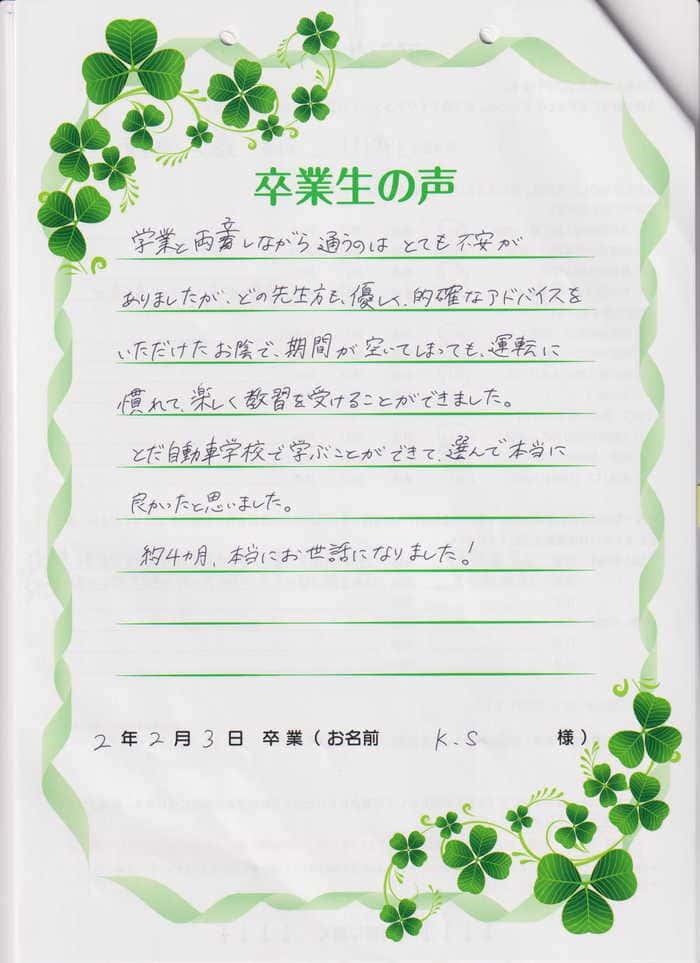 卒業生の声
学業と両立しながら通うのは とても不安が
ありましたが、どの先生方も、優しく、的確なアドバイスを
いただけたお陰で、期間が空いてしまっても、運転に
慣れて、楽しく教習を受けることができました。
とだ自動車学校で学ぶことができて、選んで本当に
良かったと思いました。
約4ヵ月、本当にお世話になりました!
2年2月3日 卒業(お名前 K.S 様)